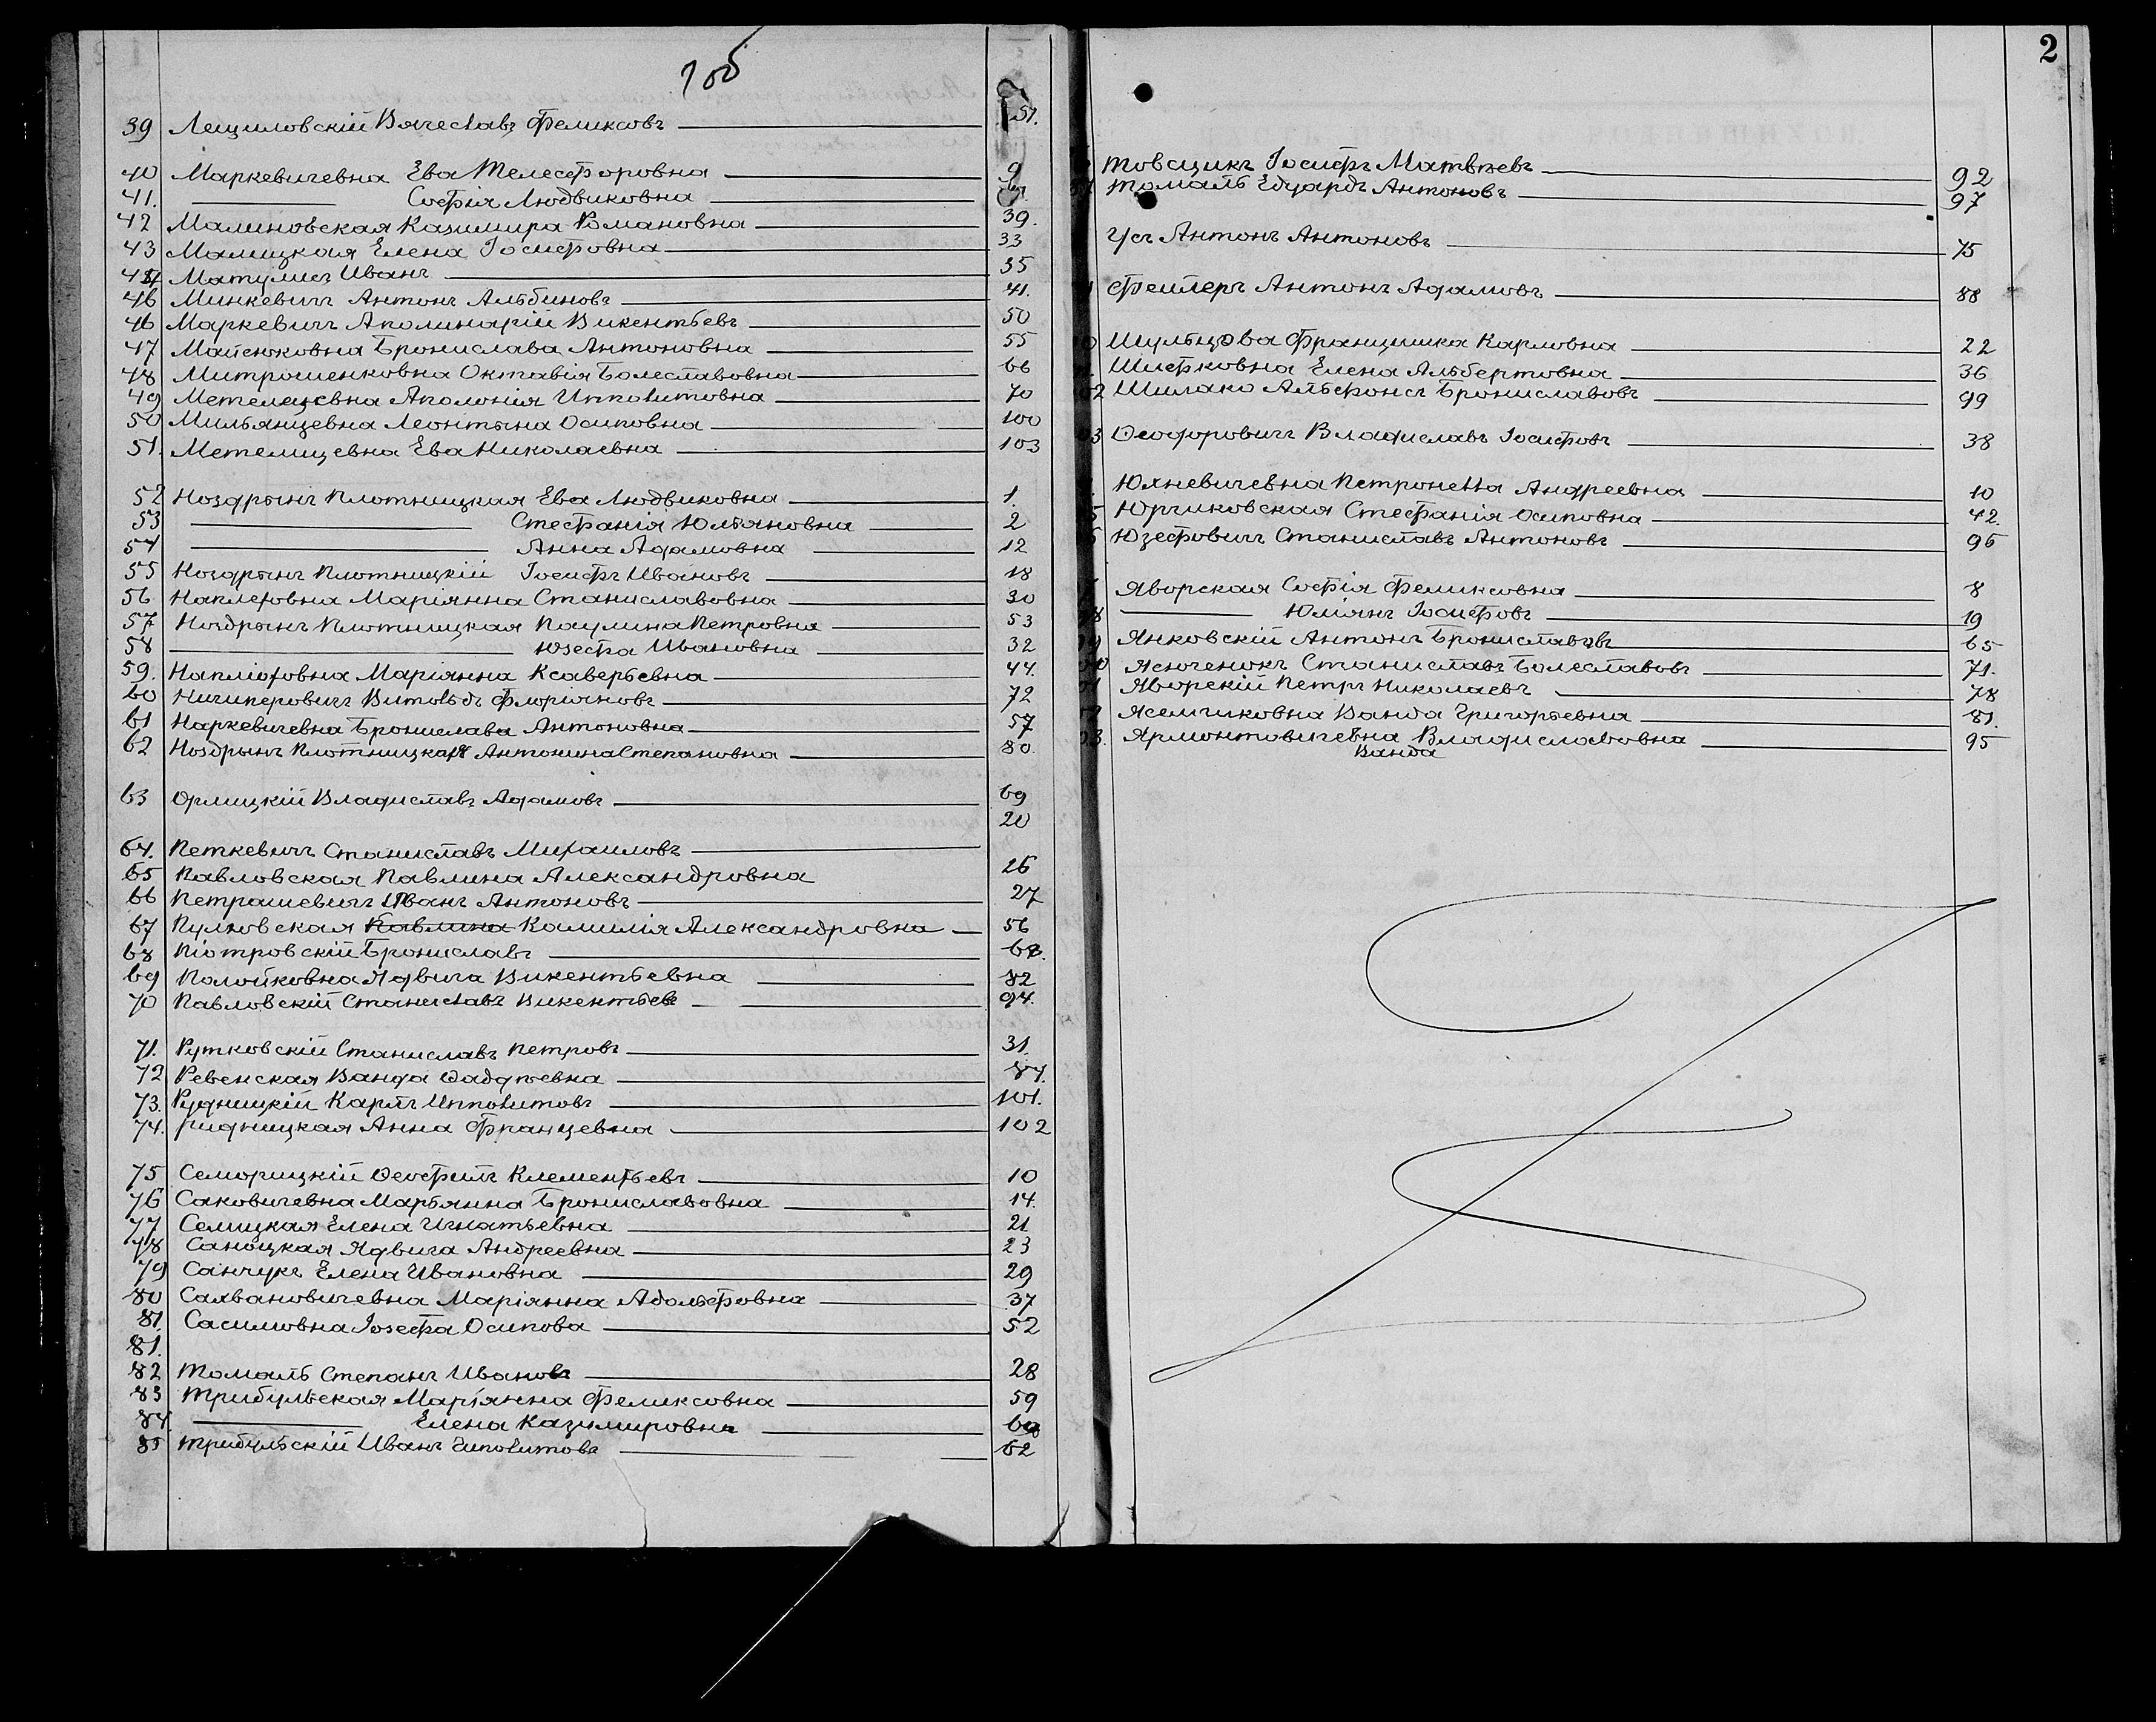 39 Лециловскій Вячеславъ Феликсовъ 51.
40 Маркевичевна Ева Телесфоровна 9
41. Софія Людвиковна
42 Малиновская Казимира Романовна 39.
43 Малицкая Елена Іосифовна 33
Матулиц Иванъ 35
46 Минкевичъ Антонъ Альбиновъ 41.
46 Маркевичъ Аполинарій Викентьевъ 50
47 Майсюковна Брониславa Антоновна 55
48 Митрошенковна Октавія Болеславовна 66
49 Метелецевна Аполонія Ипполитовна 70
50 Мильянцевна Леонтына Осиповна 100
51. Метелицевна Ева Николаевна 103
52 Ноздрынъ Плотницкая Ева Людвиковна 1.
53 Стефанія Юльяновна 2
54 Анна Адамовна 12
55 Ноздрынъ Плотницкій Іосифъ Ивановъ 18
56 Маріянна Станиславовна 30
57 Ноздрынъ Плотницкая Паулина Петровна 53
58 Юзефа Ивановна 32
59. Маріянна Ксаверьевна 44.
60 Ничипоровичъ Витольдъ Флоріяновъ 72
61 Наркевичевна Брониславa Антоновна 57
62 Ноздрынъ Плотницкая Антонина Степановна 80.
63 Орлицкій Владиславъ Адамовъ 69
20
64. Петкевичъ Станиславъ Михаиловъ
65 Павловская Павлина Александровна 26
66 Петрашевичъ Иванъ Антоновъ 27
67 Пулковская Павлина Камилія Александровна 56
68 Піотровскій Брониславъ
69 Полойковна Ядвига Викентьевна 82
70 Павловскій Станиславъ Викентьев 94.
71. Рутковскій Станиславъ Петровъ 31.
72 Ревенская Ванда Фаддѣевна 84.
73. Рудницкій Карлъ Ипполитовъ 101.
74. Ридницкая Анна Францевна 102
75 Семорицкій Ѳеофилъ Клементьевъ 10
76 Саковичевна Марьянна Брониславовна 14.
77 Селицкая Елена Игнатьевна 21.
78 Саноцкая Ядвига Андреевна 23
79 Санчукъ Елена Ивановна 29
80 Салвановичевна Маріянна Адольфовна 37
81. Сасимовна Іозефа Осипова 52
81.
82 Томаль Степанъ Иванов 28
83 Трибульская Маріянна Феликсовна 59
84. Елена Казимировна 60
85 Трибульскій Иванъ Ипполитовъ 62
2
Товсцикъ Іосифъ Матвѣевъ 92
Томаль Едуардъ Антоновъ 97
Гусъ Антонъ Антоновъ 75
Фейлеръ Антонъ Адамовъ 88
Шульцова Францишка Карловна 22
Шифковна Елена Альбертовна 36
Шилако Альфонсъ Брониславовъ 99
Ѳеодоровичъ Владиславъ Іосифовъ 38
Юхневичевна Петронелла Андреевна 10
Юрчиковская Стефанія Осиповна 42.
Юзефовичъ Станиславъ Антоновъ 96
Яворская Софія Феликсовна 8
Юліянъ Іосифовъ 19
Янковскій Антонъ Брониславовъ 65
Ясюченокъ Станиславъ Болеславовъ 71.
Яворскій Петръ Николаевъ 78
Яселчиковна Ванда Григорьевна 81.
Ярмонтовичевна Владиславовна 95
Ванда